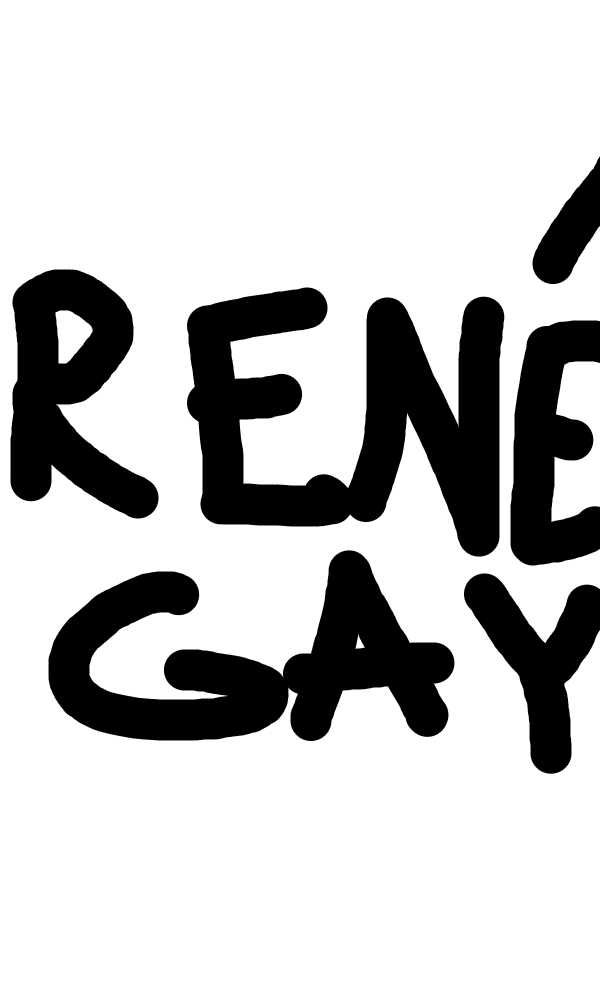 RENÉ
GAY